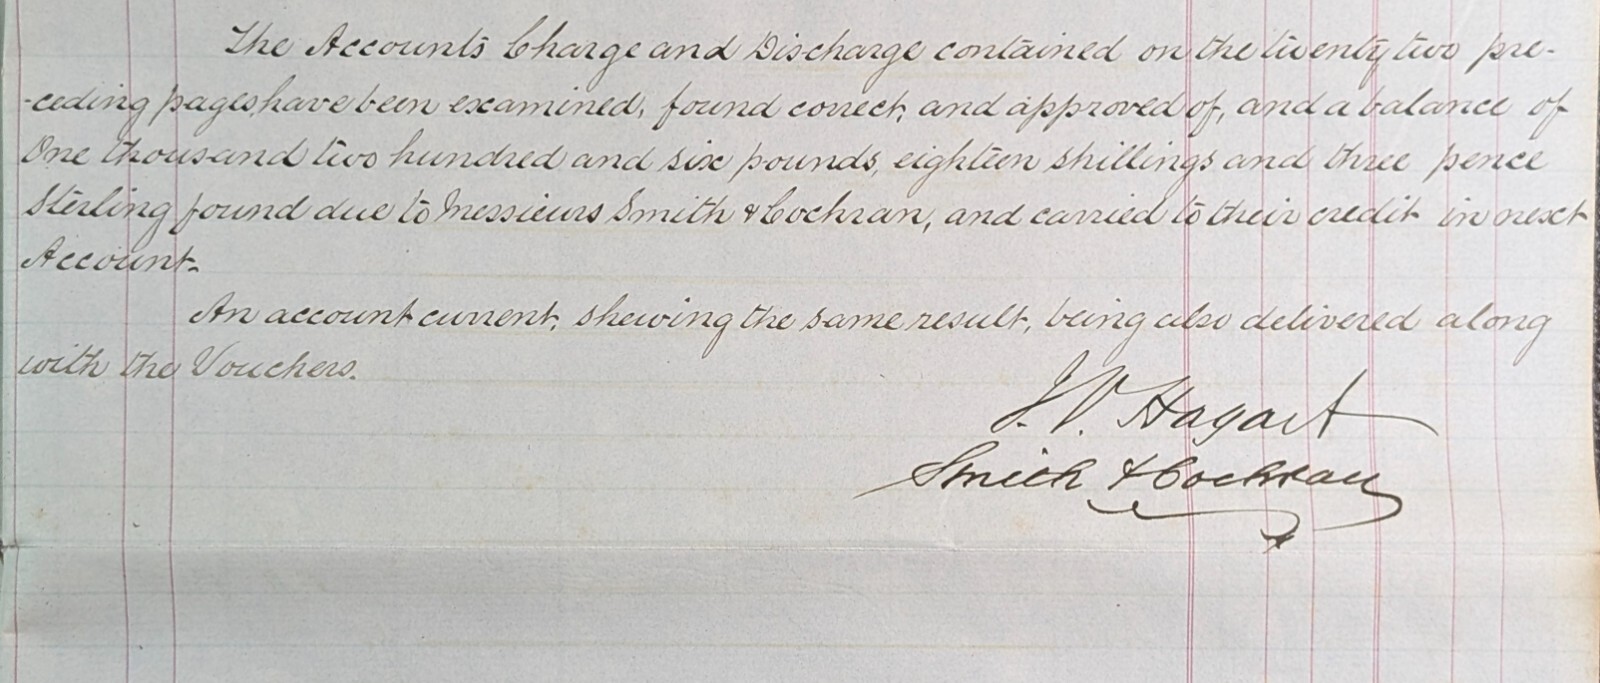 The Accounts Charge and Discharge contained on the twenty two pre-
-ceding pages, have been examined, found correct, and approved of, and a balance of
One thousand two hundred and six pounds, eighteen shillings and three pence
Sterling found due to Messieurs Smith & Cochran, and carried to their credit in next
Account.
An account current, shewing the same result, being also delivered along
with the Vouchers.
J. V. Hagart
Smith & Cochran